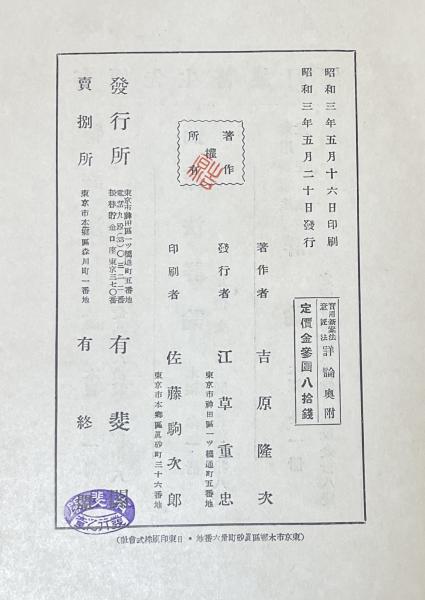 昭和三年五月十六日印刷
昭和三年五月二十日發行
實用新案法
意匠法
詳論奥附
定價金參圓八拾錢
著作權所有
著作者 吉原隆次
東京市神田區一ツ橋通町五番地
發行者 江草重忠
東京市本鄕區眞砂町三十六番地
印刷者 佐藤駒次郎
發行所
東京市神田區一ツ橋通町五番地
振替貯金口座東京三七〇番
有斐閣
賣捌所
東京市本鄕區森川町一番地
有終
(東京市本鄕區眞砂町卅六番地・日東印刷株式會社)